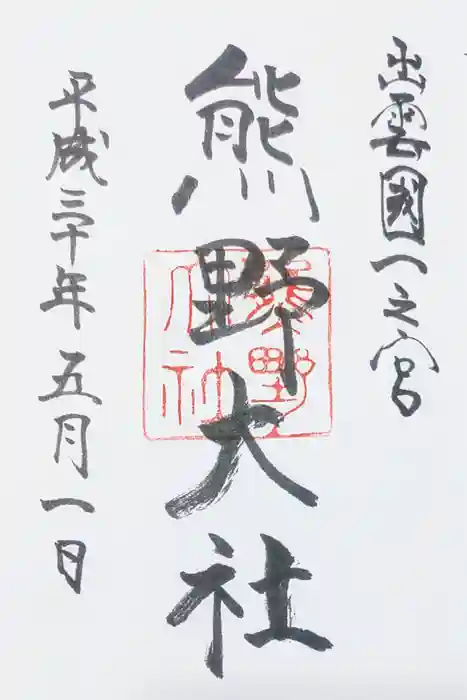 出雲國一之宮
熊野大社
熊野大社
平成三十年五月一日